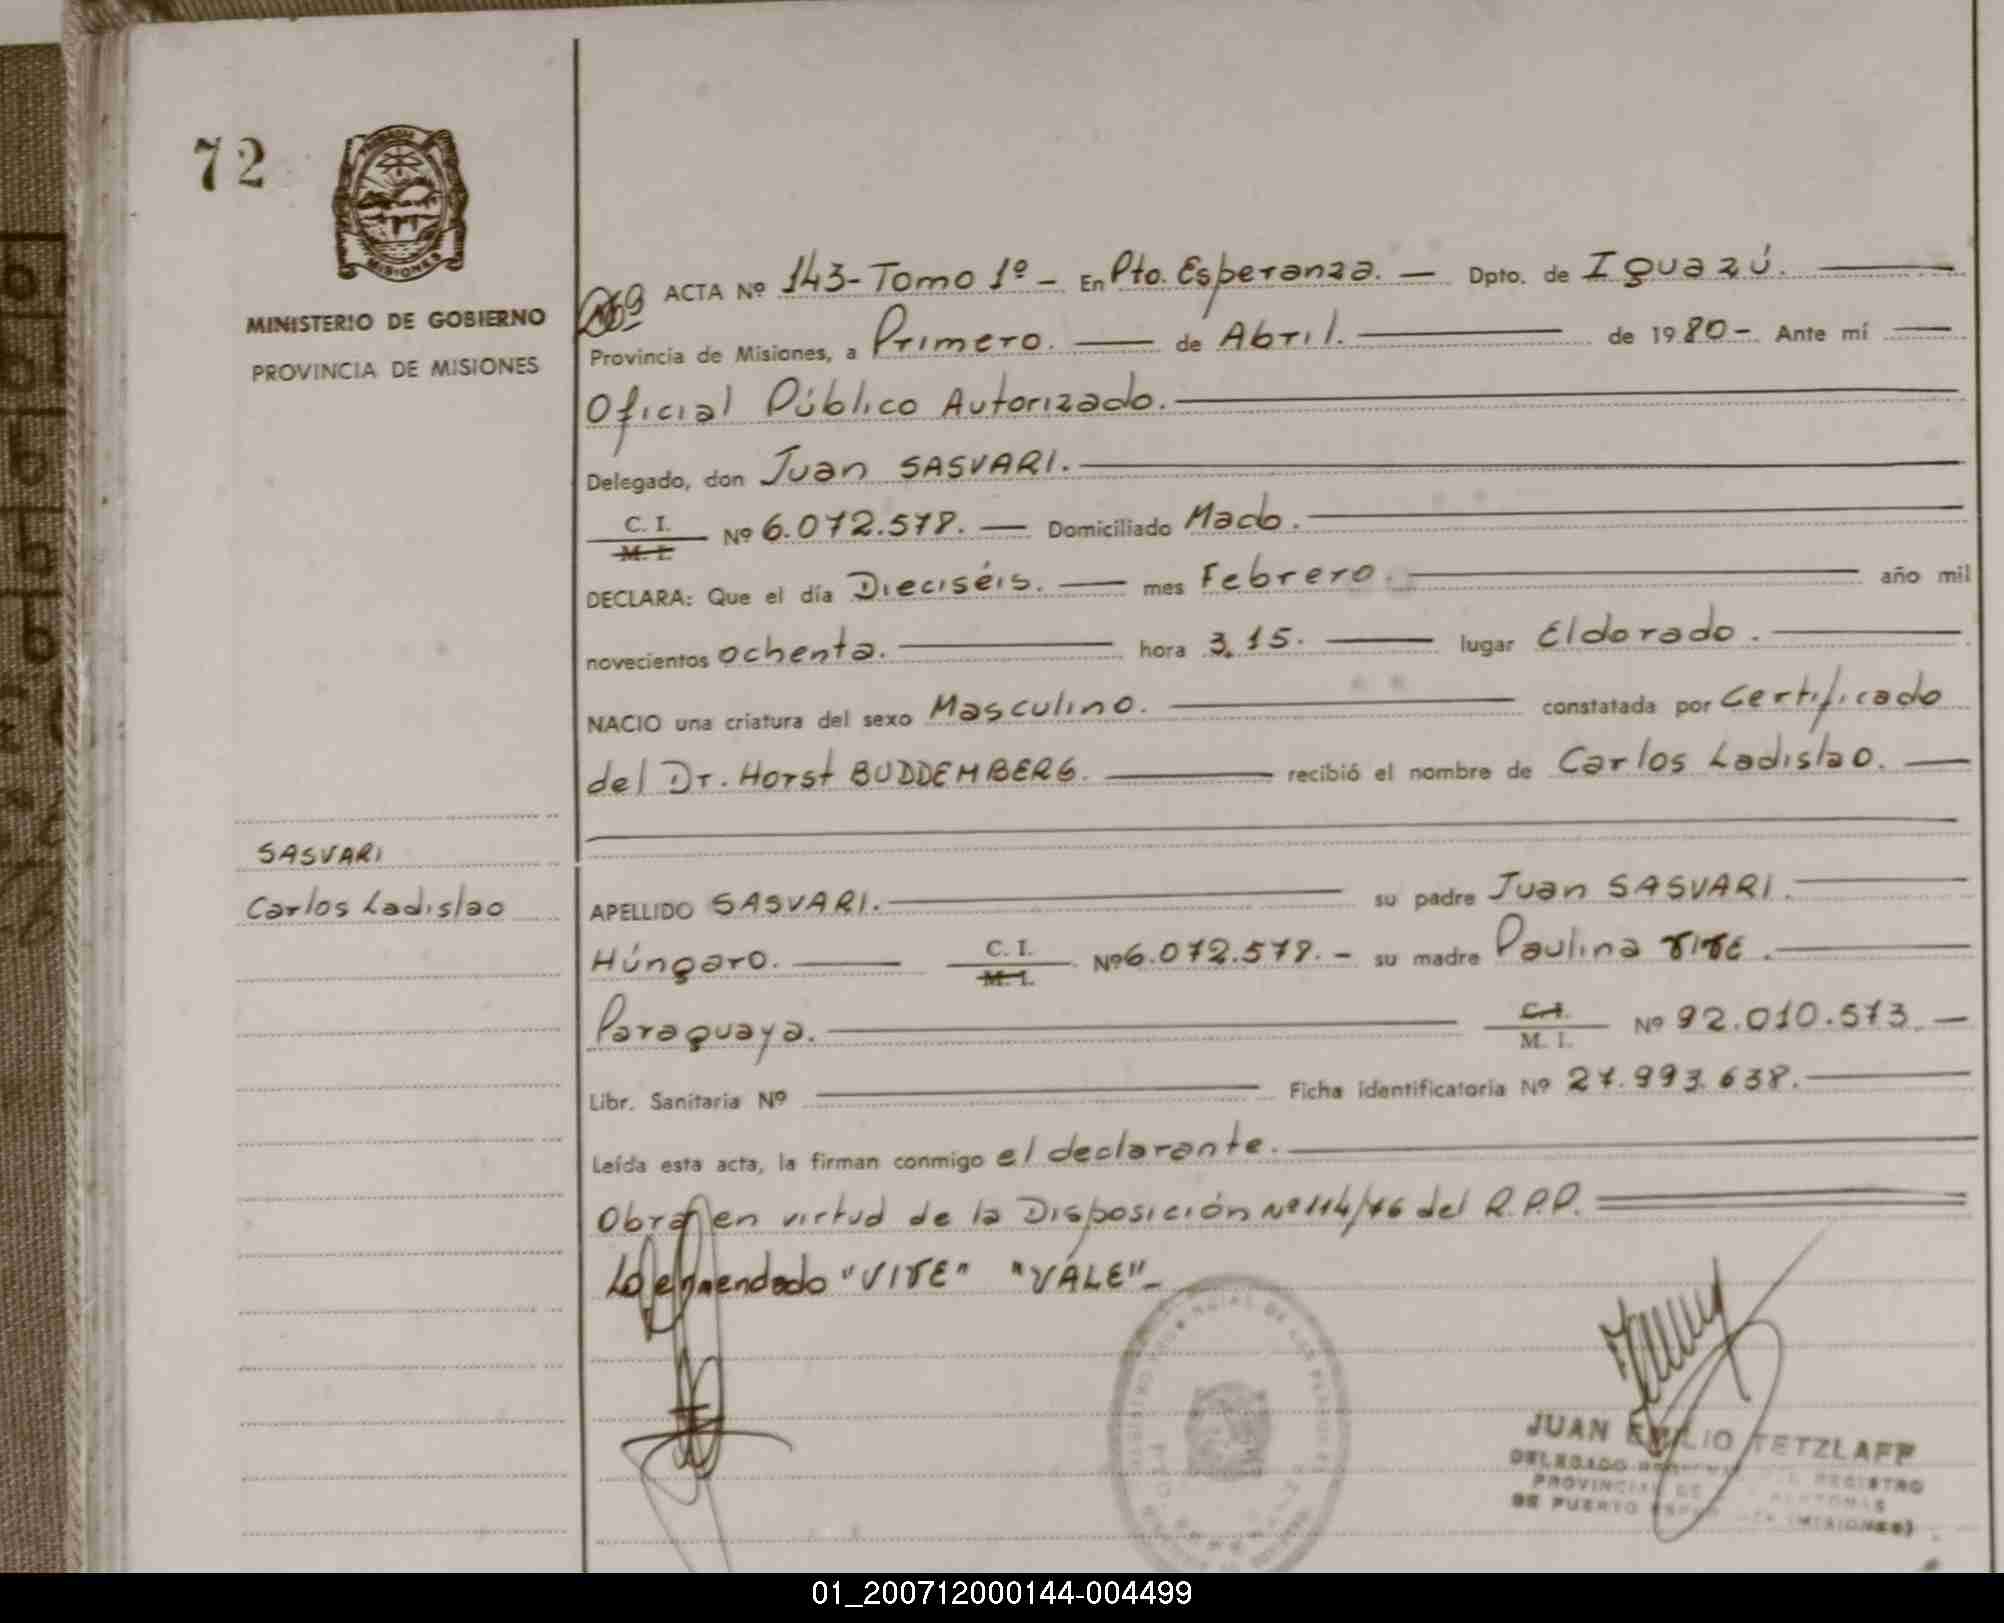 72
MISIONES
MINISTERIO DE GOBIERNO
PROVINCIA DE MISIONES
ACTA Nº 143-Tomo 1º - En Pto. Esperanza. — Dpto. de Iguazú. —
Provincia de Misiones, a Primero. — de Abril. — de 1980-. Ante mí —
Oficial Público Autorizado. —
Delegado, don Juan SASVARI. —
C. I.
M. I. Nº 6.072.578. — Domiciliado Mado. —
DECLARA: Que el día Dieciséis. — mes Febrero. — año mil
novecientos ochenta. — hora 3,15. — lugar Eldorado. —
NACIO una criatura del sexo Masculino. — constatada por Certificado
del Dr. Horst BUDDEMBERG. — recibió el nombre de Carlos Ladislao. —
SASVARI
Carlos Ladislao
APELLIDO SASVARI. — su padre Juan SASVARI. —
Húngaro. — C. I.
M. I. Nº 6.072.578. - su madre Paulina VITE. —
Paraguaya. — C. I.
M. I. Nº 92.010.573. —
Libr. Sanitaria Nº — Ficha identificatoria Nº 27.993.638. —
Leída esta acta, la firman conmigo el declarante. —
Obra en virtud de la Disposición Nº 114/76 del R.P.P.
Lo enmendado "VITE" "VALE"-
JUAN EMILIO TETZLAFF
DELEGADO REGISTRO
PROVINCIAL DE
DE PUERTO (MISIONES)
01_200712000144-004499